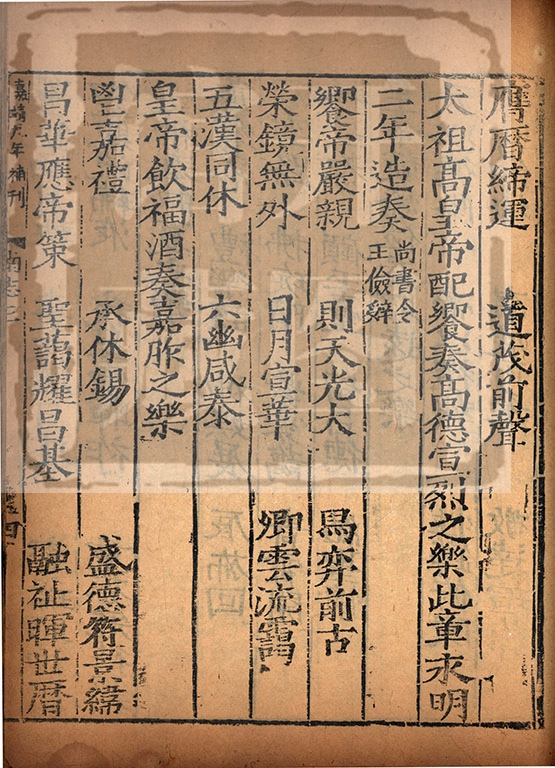 膺曆締運 道茂前聲
太祖髙皇帝配饗奏髙德宣烈之樂此章永明
二年造奏尚書令王儉辭
饗帝嚴親 則天光大 舄弈前古
榮鏡無外 日月宣華 卿雲流靄
五漢同休 六幽咸泰
皇帝飲福酒奏嘉胙之樂
鬯嘉禮 承休錫 盛德符景緯
昌華應帝策 聖藹耀昌基 融祉暉世曆
年補刊 南志三 四